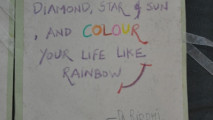 DIAMOND, STAR & SUN
, AND COLOUR
YOUR LIFE LIKE
RAINBOW